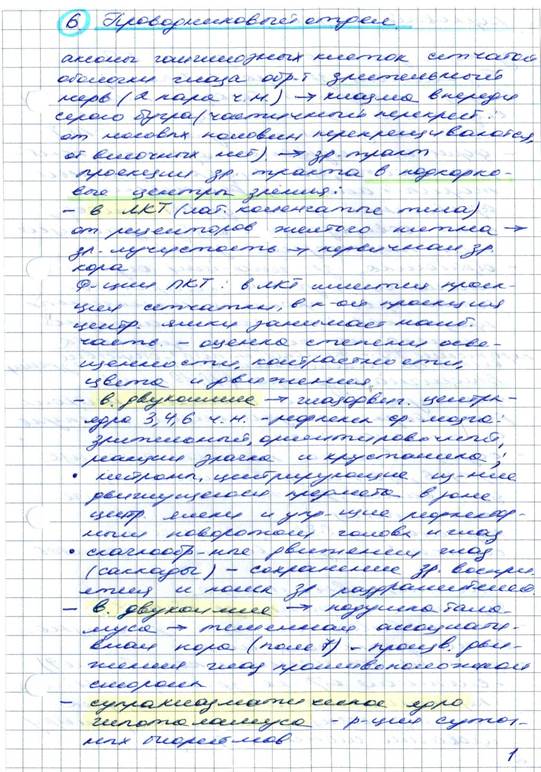 6. Проводниковый отдел.
аксоны ганглиозных клеток сетчатой
оболочки глаза обр-т зрительный
нерв (2 пара ч.н.) → хиазма впереди
серого бугра (частичный перекрест:
от носовых половин перекрещиваются,
от височных нет) → зр. тракт
проекции зр. тракта в подкорко-
вые центры зрения:
- в ЛКТ (лат. коленчатые тела)
от рецепторов желтого пятна →
зр. лучистость → первичная зр.
кора
Ф-ции ЛКТ: в ЛКТ имеется проек-
ция сетчатки, в к-ой проекция
центр. ямки занимает наиб.
часть. - оценка степени осве-
щенности, контрастности,
цвета и движения
- в. двухолмие → глазодвиг. центры-
ядра 3,4,6 ч.н. - рефлексы ср. мозга:
зрительный, ориентировочный,
реакция зрачка и хрусталика;
• нейроны, центрирующие
движущегося предмета в зоне
центр. ямки и упр-щие рефлектор-
ными поворотами головы и глаз
• скачкообр-ные движения глаз
(саккады) - сохранение зр. воспри-
ятия и поиск зр. раздражителей.
- в. двухолмие → подушка тала-
муса → теменная ассоциати-
вная кора (поле 7) - произв. дви-
жения глаз противоположной
стороны
- супрахиазматическое ядро
гипоталамуса - р-ция суточ-
ных биоритмов
1